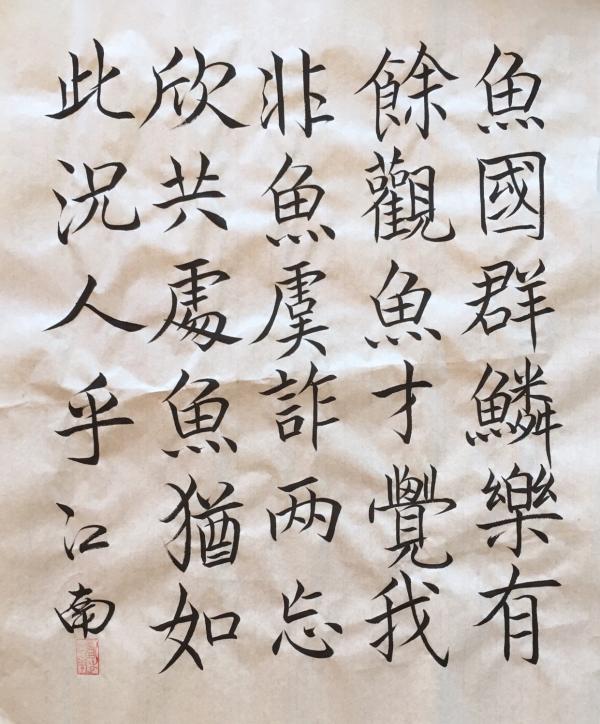 魚國群鱗樂有
餘觀魚才覺我
非魚虞詐两忘
欣共處魚猶如
此況人乎江南